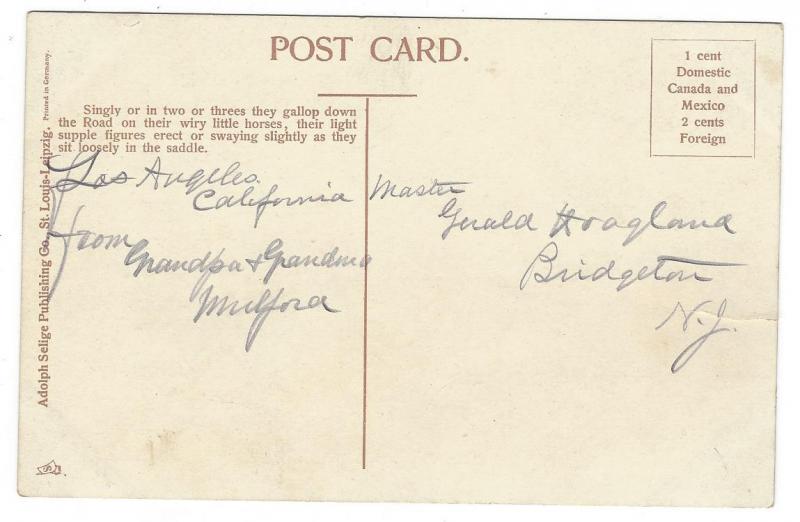 POST CARD.
1 cent
Domestic
Canada and
Mexico
2 cents
Foreign
Singly or in two or threes they gallop down
the Road on their wiry little horses, their light
supple figures erect or swaying slightly as they
sit loosely in the saddle.
Los Angeles
California
From
Grandpa + Grandma
Mulford
Master
Gerald Hoagland
Bridgeton
N.J.
Adolph Selige Publishing Co., St. Louis-Leipzig. Printed in Germany.